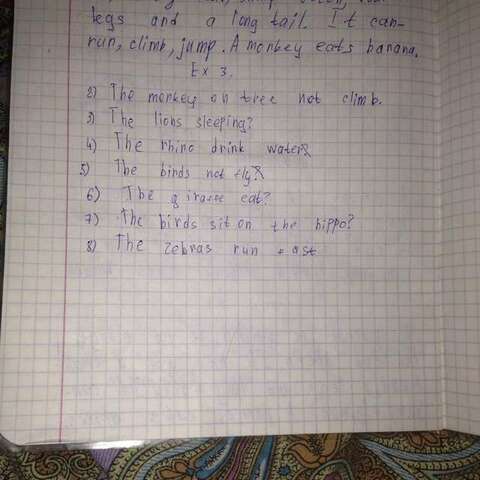 legs and a long tail. It can-
run, climb, jump. A monkey eats banana.
Ex 3.
2) The monkey on tree not climb.
3) The lions sleeping?
4) The rhino drink water?
5) The birds not fly?
6) The girasse eat?
7) The birds sit on the hippo?
8) The zebras run fast